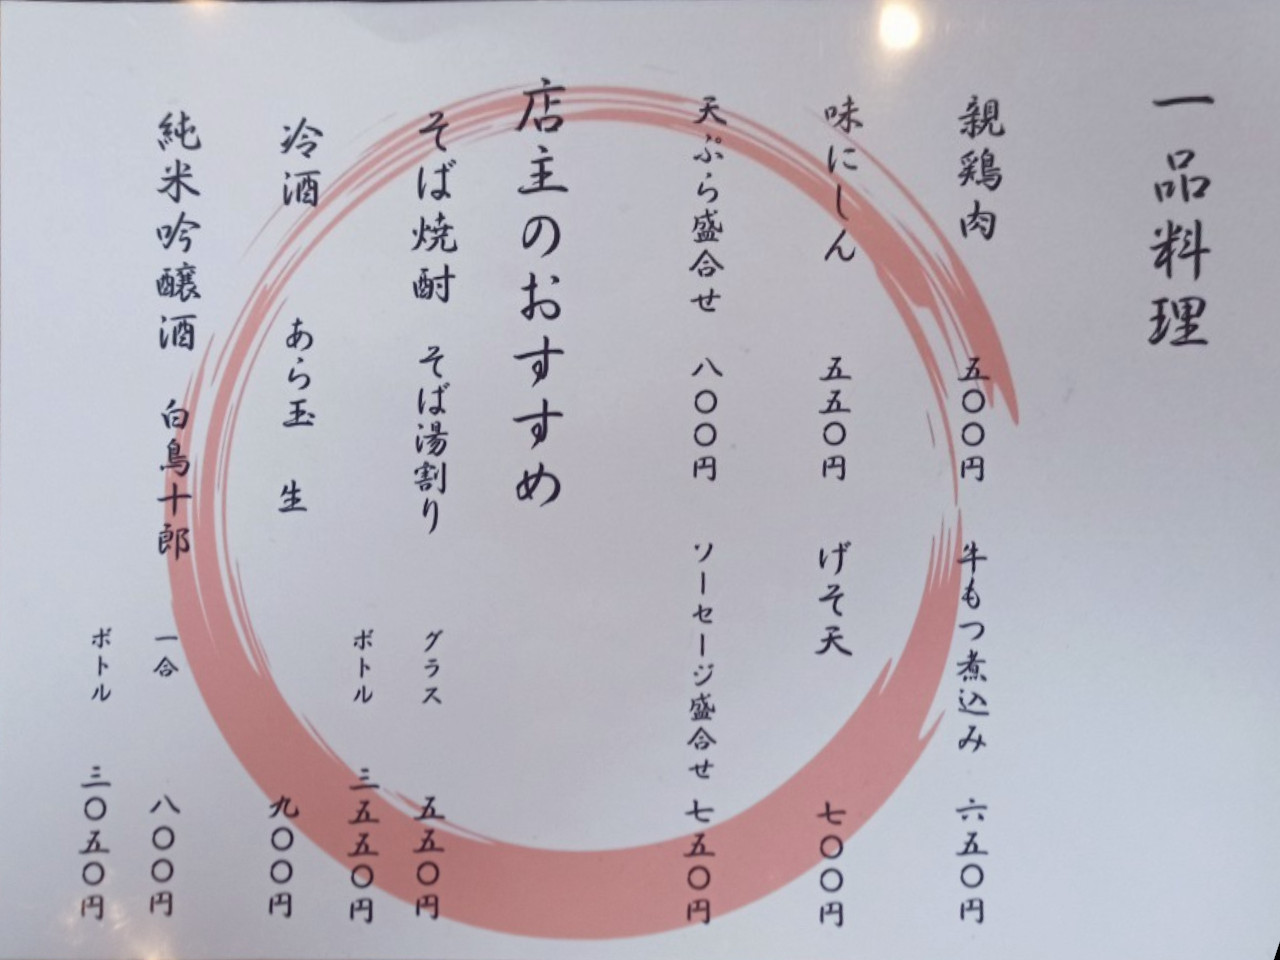 一品料理
親鶏肉 五〇〇円 牛もつ煮込み 六五〇円
味にしん 五五〇円 げそ天 七〇〇円
天ぷら盛合せ 八〇〇円 ソーセージ盛合せ 七五〇円
店主のおすすめ
そば焼酎 そば湯割り グラス 五五〇円
ボトル 三五五〇円
冷酒 あら玉 生 九〇〇円
純米吟醸酒 白鳥十郎 一合 八〇〇円
ボトル 三〇五〇円